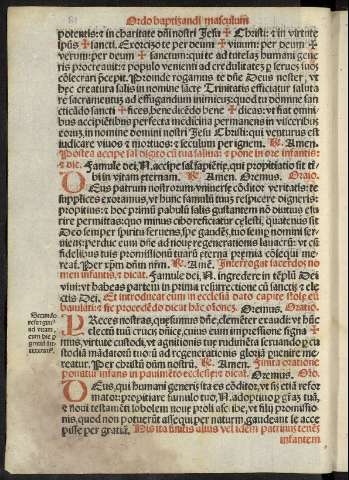 Ordo baptizandi masculum
potentis: ⁊ in charitate dñi nostri Jesu ✠ Christi: ⁊ in virtute
ipūs ✠ sancti. Exorcizo te per deum ✠ viuum: per deum ✠
verum: per deum ✠ sanctum: qui te ad tutelaȝ humani gene
ris procreauit: ⁊ populo venienti ad credulitateȝ ꝑ seruos suos
cōsecrari ꝑcepit. Proinde rogamus te dñe Deus noster, vt
hęc creatura salis in nomine sacrę Trinitatis efficiatur saluta
re sacramentuȝ ad effugandum inimicuȝ: quod tu domine san
ctificādo sancti ✠ fices, benedicēdo bene ✠ dicas: vt fiat omni
bus accipiētibus perfecta medicina permanens in visceribus
eoruȝ, in nomine domini nostri Jesu Christi: qui venturus est
iudicare viuos ⁊ mortuos: ⁊ sęculum per ignem. ℟. Amen.
Postea accipe sal digito cū tua saliua: ⁊ pone in ore infantis:
⁊ dic. Famule dei, N. accipe sal sapiētię, qui propitiatio sit ti
bi in vitam ęternam. ℟. Amen. Oremus. Oratio.
DEus patrum nostrorum: vniuersę cōditor veritatis: te
supplices exoramus, vt hunc famulū tuuȝ respicere digneris:
propitius: ⁊ hoc primū pabulū salis gustantem nō diutius esu
rire permittas: quo minus cibo reficiatur cęlesti, quatenus sit
Deo semper spiritu feruens, spe gaudēs, tuo semp nomini ser
uiens: perduc eum dñe ad nouę regenerationis lauacrū: vt cū
fidelibus tuis promissionū tuarū ęterna pręmia cōsequi me-
reat. Per xp̄m dñm nr̄m. ℟. Amē. Interroget sacerdos no
men infantis, ⁊ dicat. Famule dei, N. ingredere in tēplū Dei
viui: vt habeas partem in prima resurrectione cū sanctis ⁊ ele
ctis Dei. Et introducat eum in ecclesiā
Oremus. Oratio.
PReces nostras, quęsumus dñe, clementer exaudi: vt hūc
electū tuū crucȩ dñicę, cuius eum impressione signa ✠
mus, virtute custodi, vt
stodia mādatorū tuorū: ad regenerationis gloriā ꝑuenire me-
reatur. Per christū dñm nostrū. ℟. Amen. Finita oratione
Oremus. Orō.
DEus, qui humani generis ita es cōditor, vt sis etiā refor
mator: propitiare famulo tuo, N. adoptiuo: ⁊ gr̄aȝ tuā,
⁊ noui testamēti sobolem nouȩ prolis ascribe, vt filij promissio
nis, quod non potuerūt assequi per naturam, gaudeant se acce
pisse per gratiā. His ita finitis alius vel idem patrinus tenēs
infantem